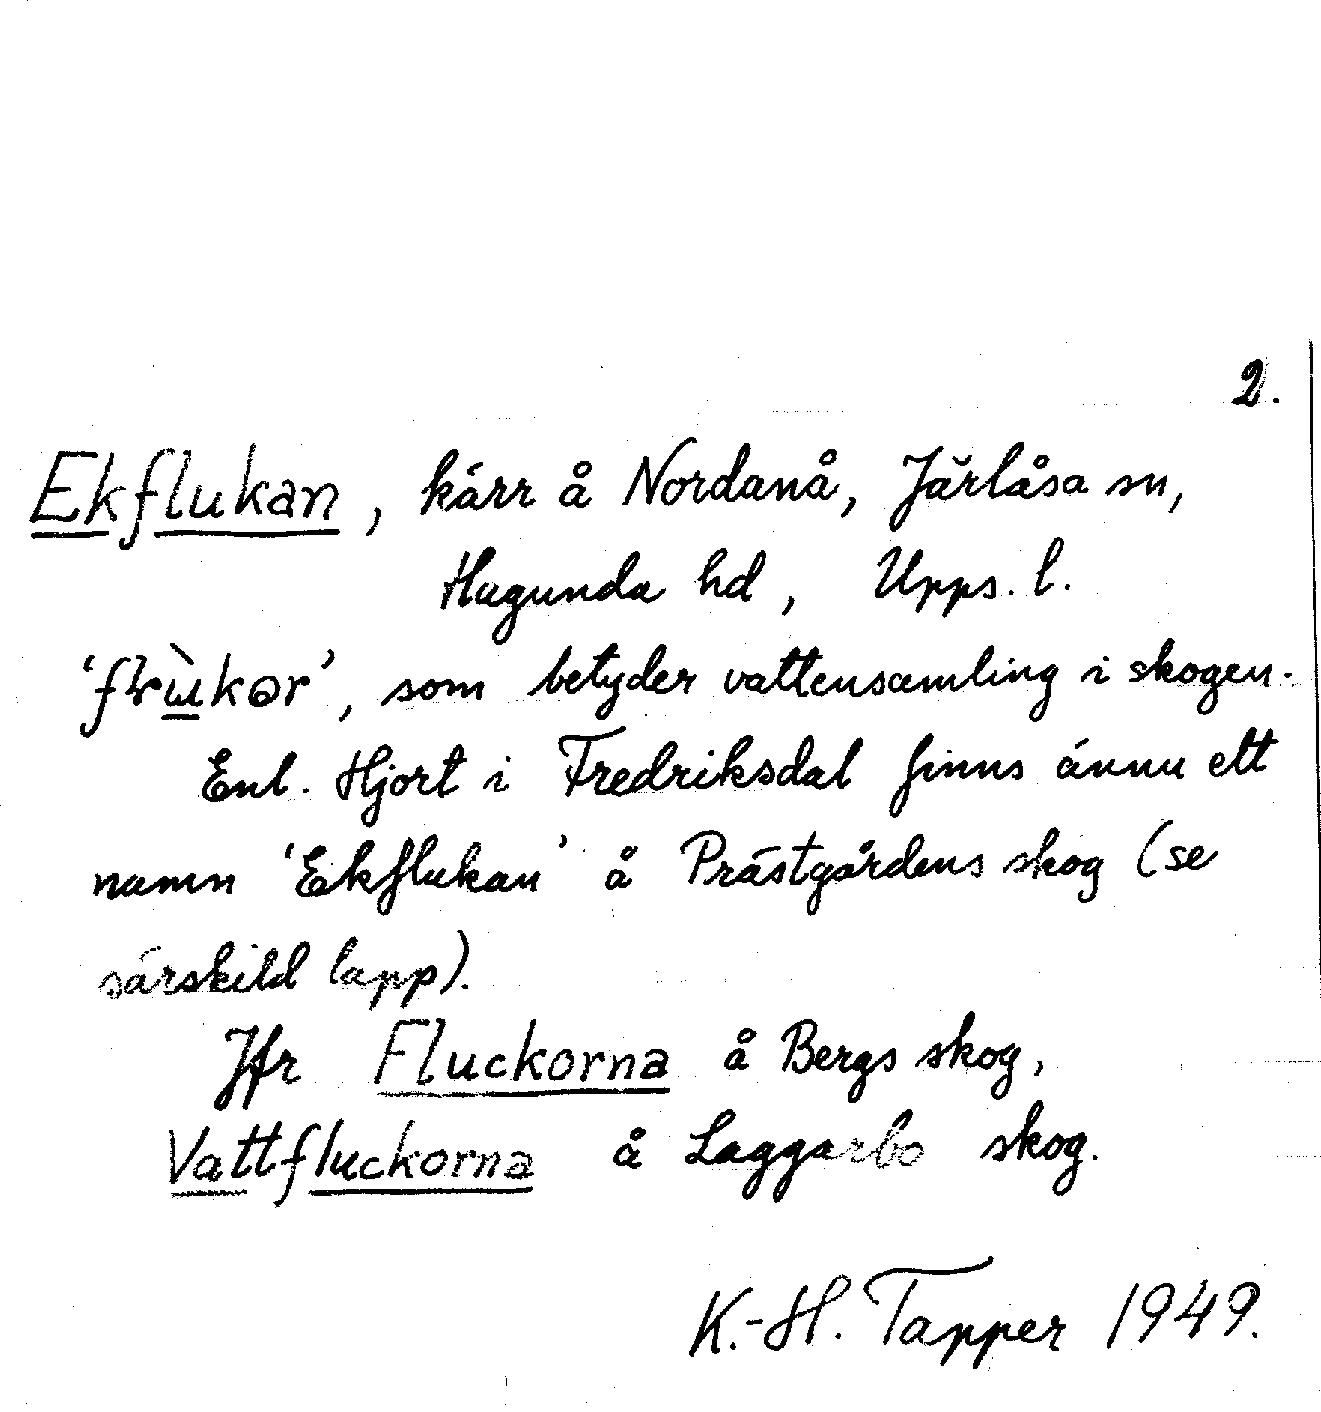 2.
Ekflukan, kärr å Nordanå, Järlåsa sn,
Hagunda hd, Upps. l.
som betyder vattensamling i skogen.
Enl. Hjort i Fredriksdal finns ännu ett
namn 'Ekflukan' å Prästgårdens skog (se
särskild lapp).
Jfr Fluckorna å Bergs skog,
Vattfluckorna å Laggarbo skog.
K.-H. Tapper 1949.